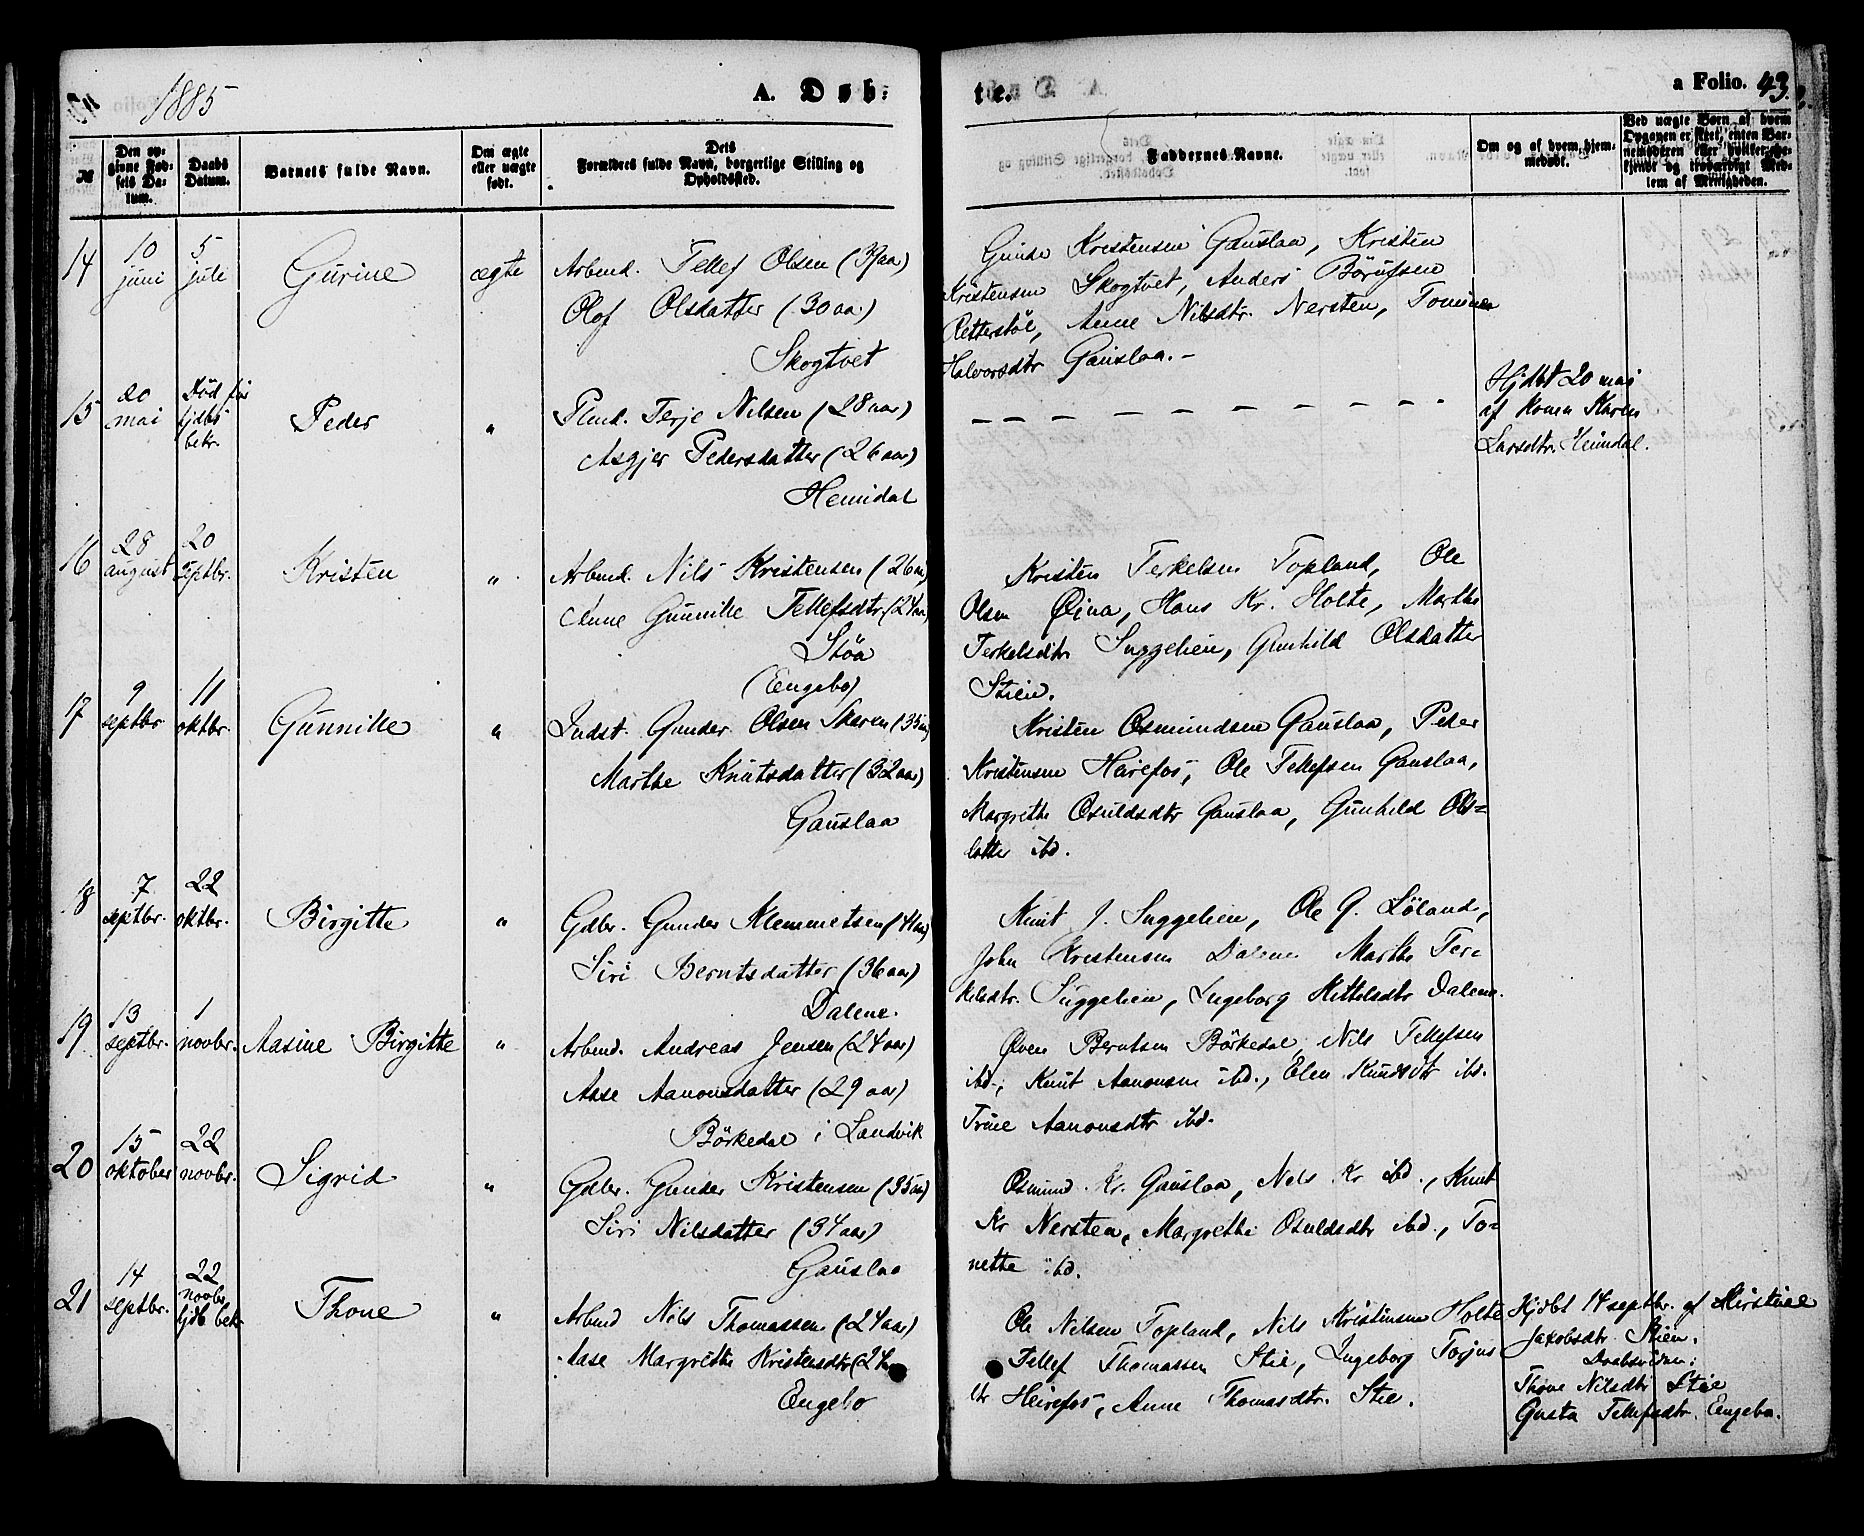 1885
A. Døb-
te.
a Folio. 43.
№
Den op-
givne Fød-
sels Da-
tum.
Daabs
Datum.
Barnets fulde Navn.
Om ægte
eller uægte
født.
Dets
Forældres fulde Navn, borgerlige Stilling og
Opholdssted.
Faddernes Navne.
Om og af hvem hjem-
medøbt.
14
10
juni
5
juli
Gurine
ægte
Arbmd. Tellef Olsen (37aa)
Olof Olsdatter (30 aa)
Skogtvet
Gunde Kristensen Gauslaa, Kristen
Kristensen Skogtvet, Anders
Retterstøl, Anne Nilsdtr. Nersten,
Halvorsdtr Gauslaa.-
15
20
mai
Død før
hjdbs
bekr.
Peder
"
Terje Nilsen (28 aar)
Asgjer Pedersdatter (26 aar)
Heimdal
— — — — — — — — — —
Hjdbt 20 mai
af konen Karen
Larsdtr. Heimdal.
16
28
august
20
septbr.
Kristen
"
Arbmd. Nils Kristensen (26aa)
Anne Gunnille Tellefsdtr. (24aa)
Støa
(Engebo)
Kristen Terkelsen Topland, Ole
Olsen Øina, Hans Kr. Holte, Marthe
Terkelsdtr Suggelien, Gunhild Olsdatter
Stien.
17
9
septbr
11
oktbr.
Gunnille
"
Indst. Gunder Olsen Skeren (35aa)
Marthe Knutsdatter (32 aar)
Gauslaa
Kristen Osmundsen Gauslaa, Peder
Kristensen Heirefos, Ole Tellefsen Gauslaa,
Margrethe Osuldsdtr Gauslaa, Gunhild Ols=
datter ibd.
18
7
septbr.
22
oktbr.
Birgitte
"
Gdbr. Gunder Klemmetsen (41aa)
Siri Berntsdatter (36 aar)
Dalene.
Knut J. Suggelien, Ole G. Løland,
John Kristensen Dalene Marthe Ter-
kelsdtr. Suggelien, Ingeborg Kittelsdtr Dalene.
19
13
septbr.
1
novbr.
Aasine Birgitte
"
Arbmd. Andreas Jensen (24 aar)
Aase Aanonsdatter (29 aar)
Börkedal i Landvik
Øven Berntsen Börkedal, Nils Tellefsen
ibd., Knut Aanonsen ibd., Elen Knudsdtr ibd.
Trine Aanonsdtr ibd.
20
15
oktober
22
novbr.
Sigrid
"
Gdbr. Gunder Kristensen (35aa)
Siri Nilsdatter (34 aar)
Gauslaa
Osmund Kr. Gauslaa, Nils Kr ibd., Knut
Kr Nersten, Margrethe Osuldsdtr ibd., To=
nette ibd.
21
14
septbr.
22
novbr
hjdb bek.
Thone
"
Arbmd Nils Thomassen (24aar)
Aase Margrethe Kristensdtr (24
Engebo
Ole Nilsen Topland, Nils Kristensen Holte
Tellef Thomassen Stie, Ingeborg Torjus
dtr Heirefos, Anne Thomasdtr. Stie.
Hjdbt 14 septbr. af Kirstine
Jakobsdtr Stien.
Daabsvidner:
Thone Nilsdtr Stie
Gusta Tellefsdtr. Engebo.